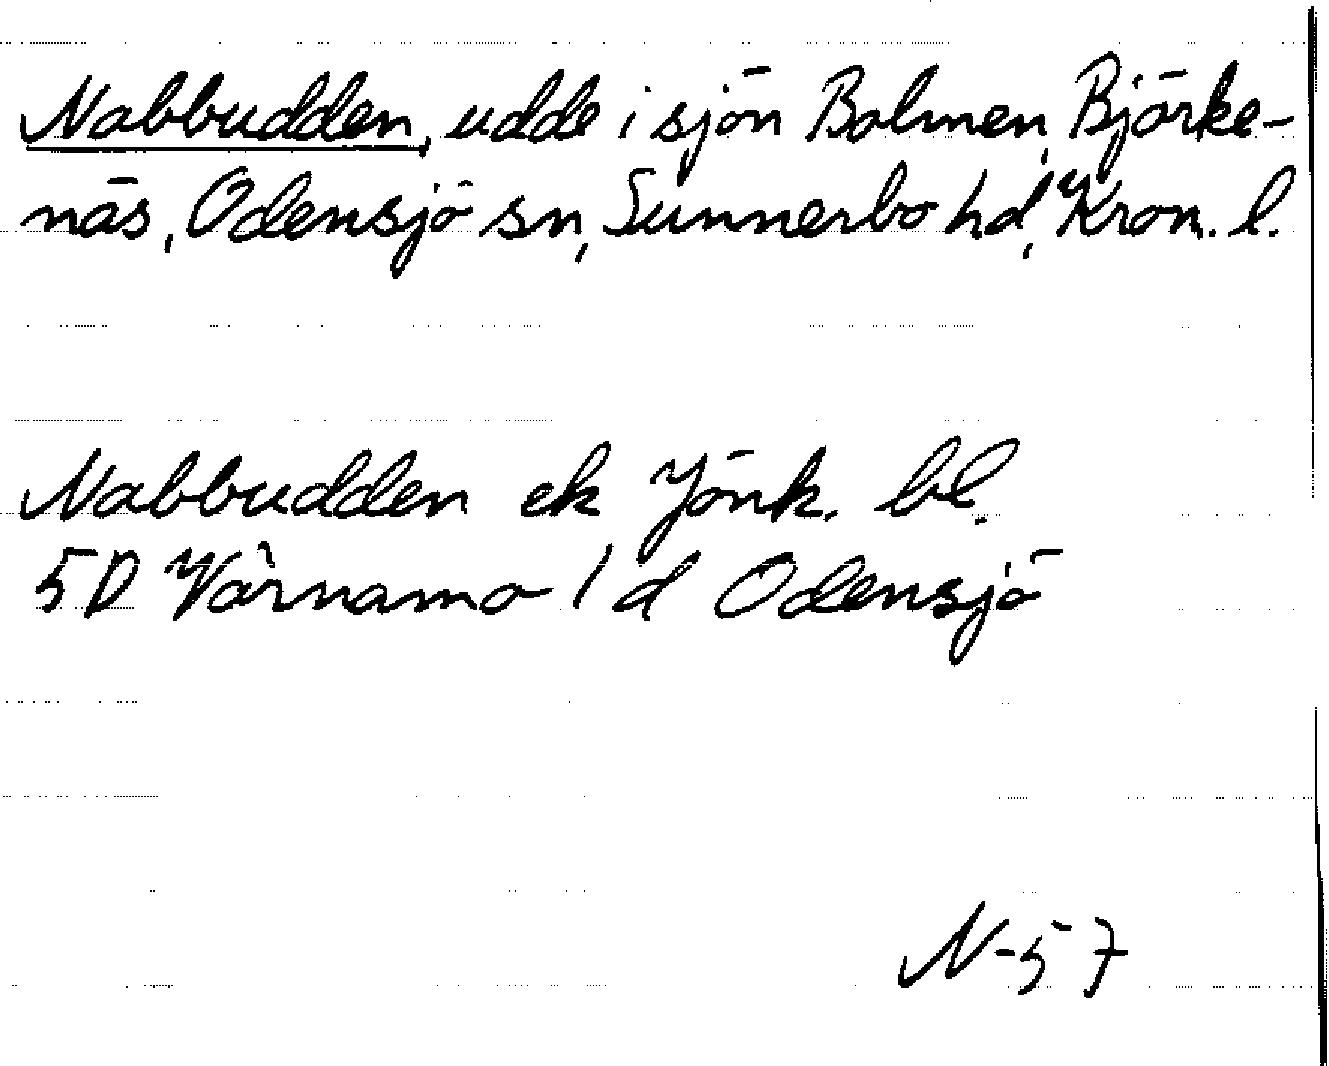 Nabbudden, udde i sjön Bolmen, Björke-
näs, Odensjö sn, Sunnerbo hd, Kron. l.
Nabbudden ek Jönk. bl.
5D Värnamo 1 d Odensjö
N-57